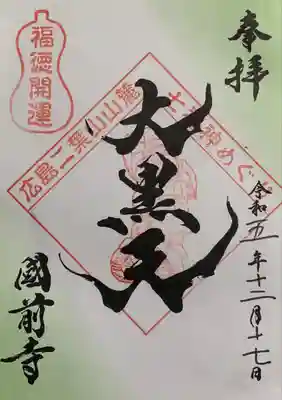 奉拝
福徳開運
広島二葉山山麓
七福神めぐ
大黒天
令和五年十二月十七日
國前寺